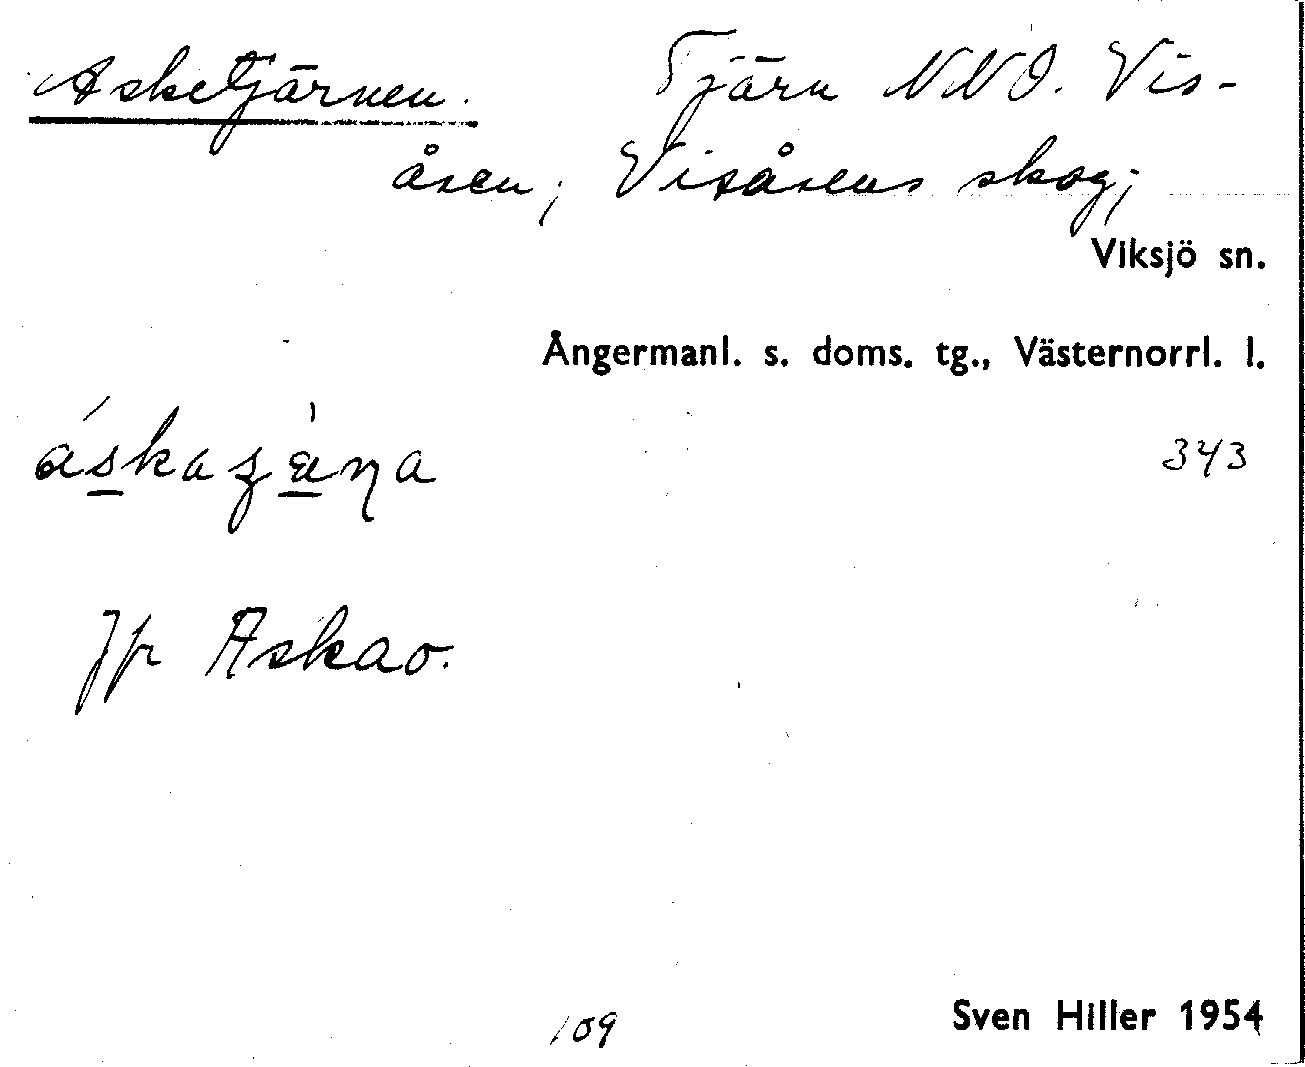 Asketjärnen. Tjärn NNO. Vis-
åsen; Visåsens skog;
Viksjö sn.
Ångermanl. s. doms. tg., Västernorrl. l.
343
Jfr Askao.
109 Sven Hiller 1954